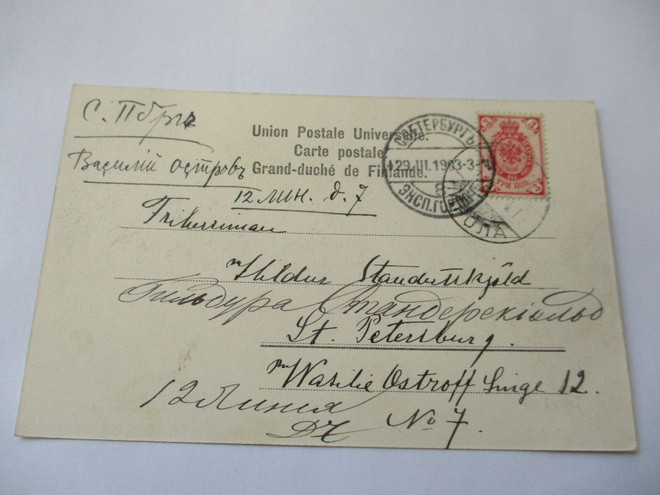 С. Пбргъ
Василій островъ
12 лин. д. 7
Union Postale Universelle.
Carte postale.
Grand-duché de Finlande.
С.ПЕТЕРБУРГЪ
29.III.1903
ЭКСП.ГОР.
3 3
ТРИ КОП.
3
Friherrinnan
Hildur Standertskjöld
Гильдура Стандерскіольд
St. Petersburg.
Wasilie Ostroff Linge 12.
12 Линія
No 7.